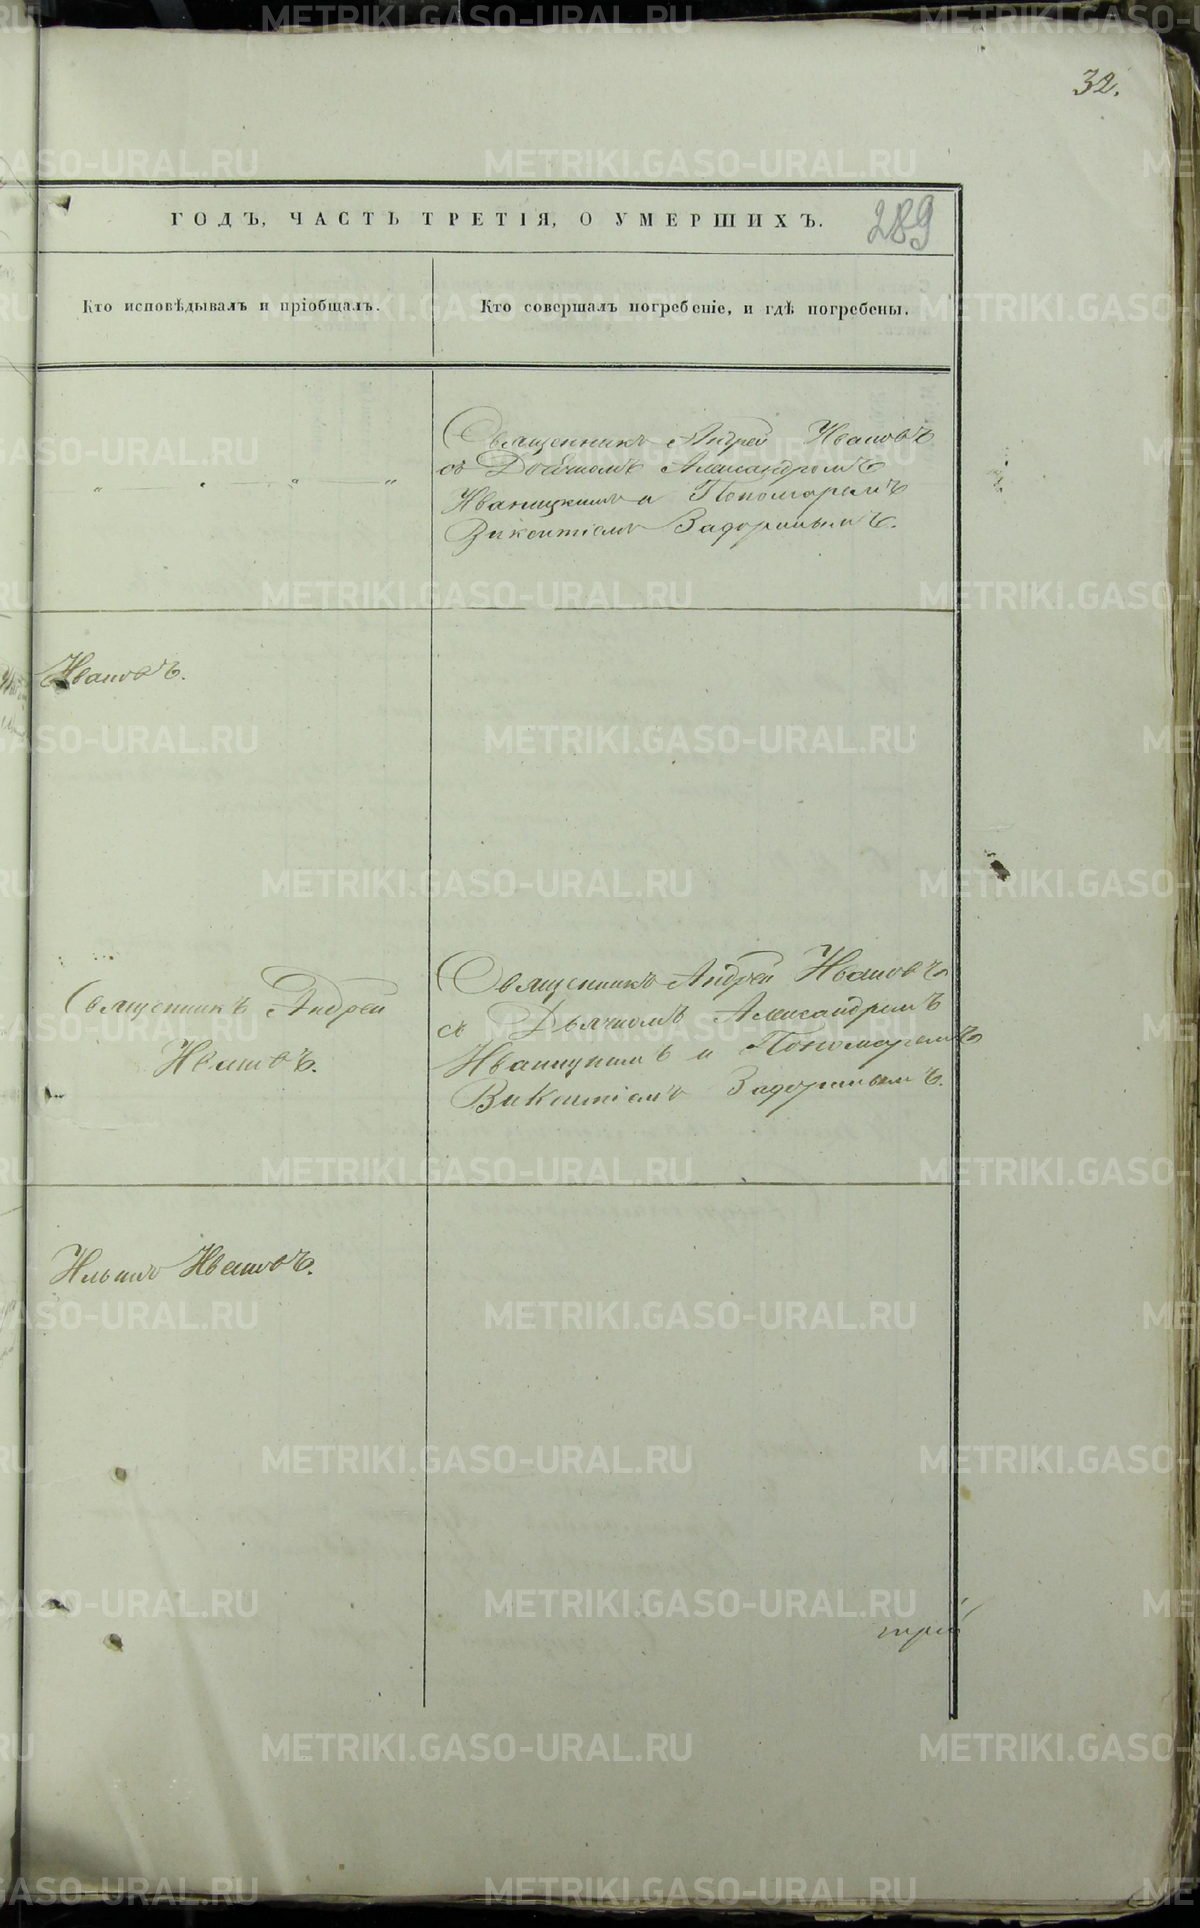 32.
ГОДЪ, ЧАСТЬ ТРЕТІЯ, О УМЕРШИХЪ.
289
Кто исповѣдывалъ и пріобщалъ.
Кто совершалъ погребеніе, и гдѣ погребены.
Священникъ Андрей Ивановъ
съ Дьячкомъ Александромъ
Иваницкимъ и Пономаремъ
Викентіемъ Задоринымъ.
Ивановъ.
Священникъ Андрей
Ивановъ.
Священникъ Андрей Ивановъ
съ Дьячкомъ Александромъ
Иваницкимъ и Пономаремъ
Викентіемъ Задоринымъ.
Ивановъ.
METRIKI.GASO-URAL.RU